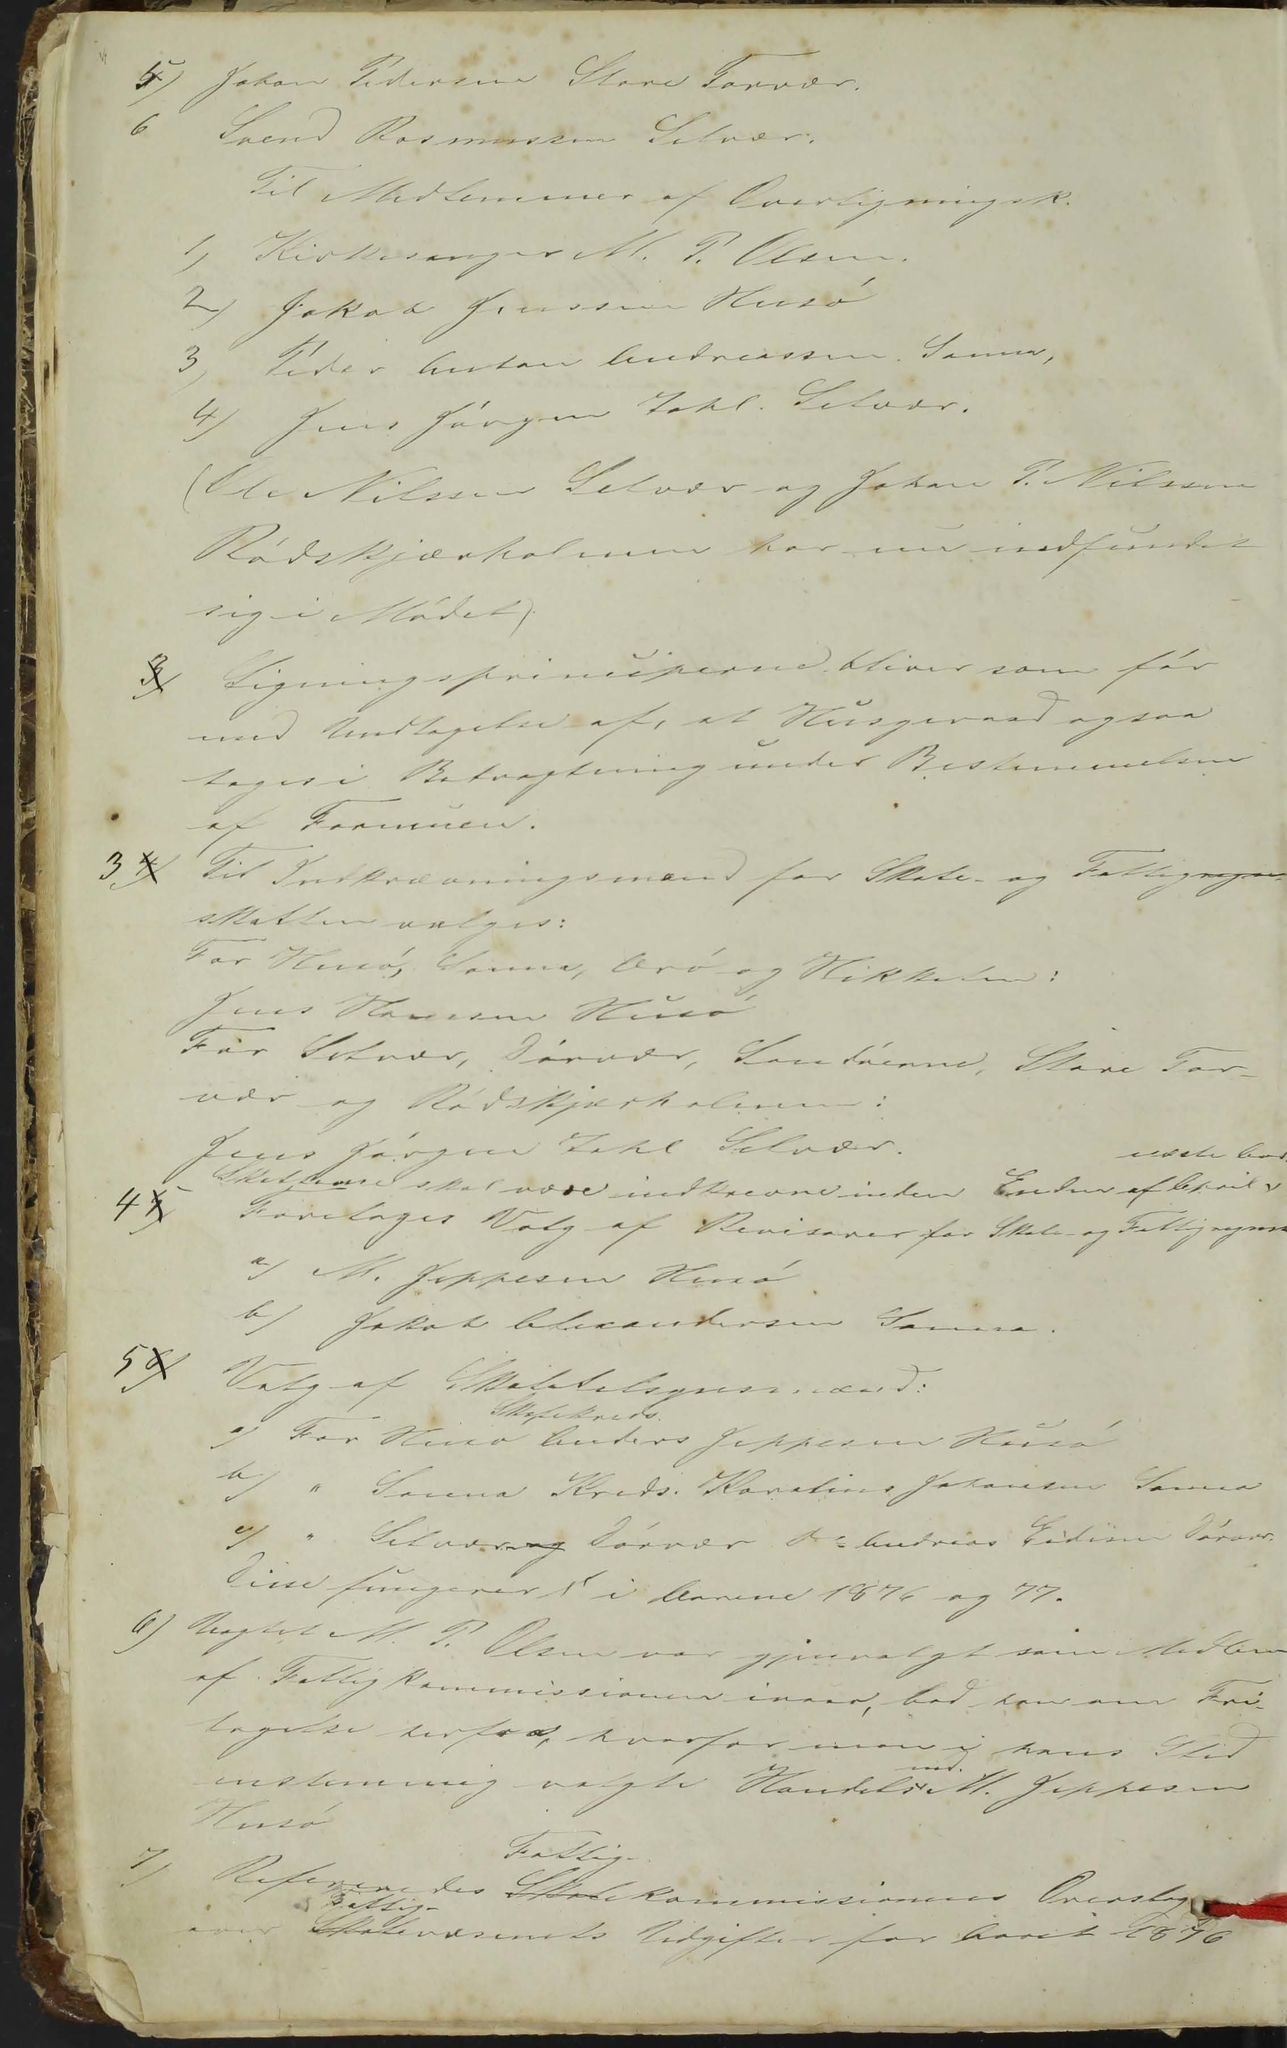 5) Johan Pedersen Store Forvær.
6 Svend Rasmussen Selvær.
Til Medlemmer af Overligningsk.
1) Kirkesanger M. P. Olsen.
2) Jakob Jenssen Husö
3) Peder Anton Andreassen Sanna,
4) Jens Jörgen Zahl. Selvær.
(Ole Nilssen Selvær og Johan P. Nilssen
Rödskjærholmen har nu indfundet
sig i Mödet).
Ligningsprinciperne bliver som för
med Undtagelse af, at Husgeraad ogsaa
tages i Betragtning under Bestemmelsen
af Formuen.
3) Til Indkrævningsmænd for Skole- og Fattig
skatten valges:
For Husö, Sanna, Ærö og Hikkelen:
Jens Hansen Husö
For Selvær, Dörvær, Sandöerne, Store For-
vær og Rödskjærholmen:
Jens Jörgen Zahl Selvær.
næste Aar.
Skatterne skal være indkrevne inden Enden af April
4) Foretoges Valg af Revisorer for Skole- og Fattigregnsk
a) M. Jeppesen Husö
b) Jakob Alexandersen Sanna.
5) Valg af Skoletilsynsmænd:
Skolekreds.
a) For Husö Anders Jeppesen Husö
b) " Sanna Kreds. Karolius Johansen Sanna
c) " Selvær og Dörvær do Andreas Dörvær.
Disse fungerer i Aarene 1876 og 77.
6) Uagtet M. P. Olsen var gjenvalgt som Medlem
af Fattigkommissionen ivaar, bad han om Fri-
tagelse herfor, hvorfor man i hans Sted
md.
enstemmig valgte Handels M. Jeppesen
Husö
Fattig-
7) Refereredes Skolekommissionens Overslag
Fattig-
over Skolevæsenets Udgifter for Aaret 1876